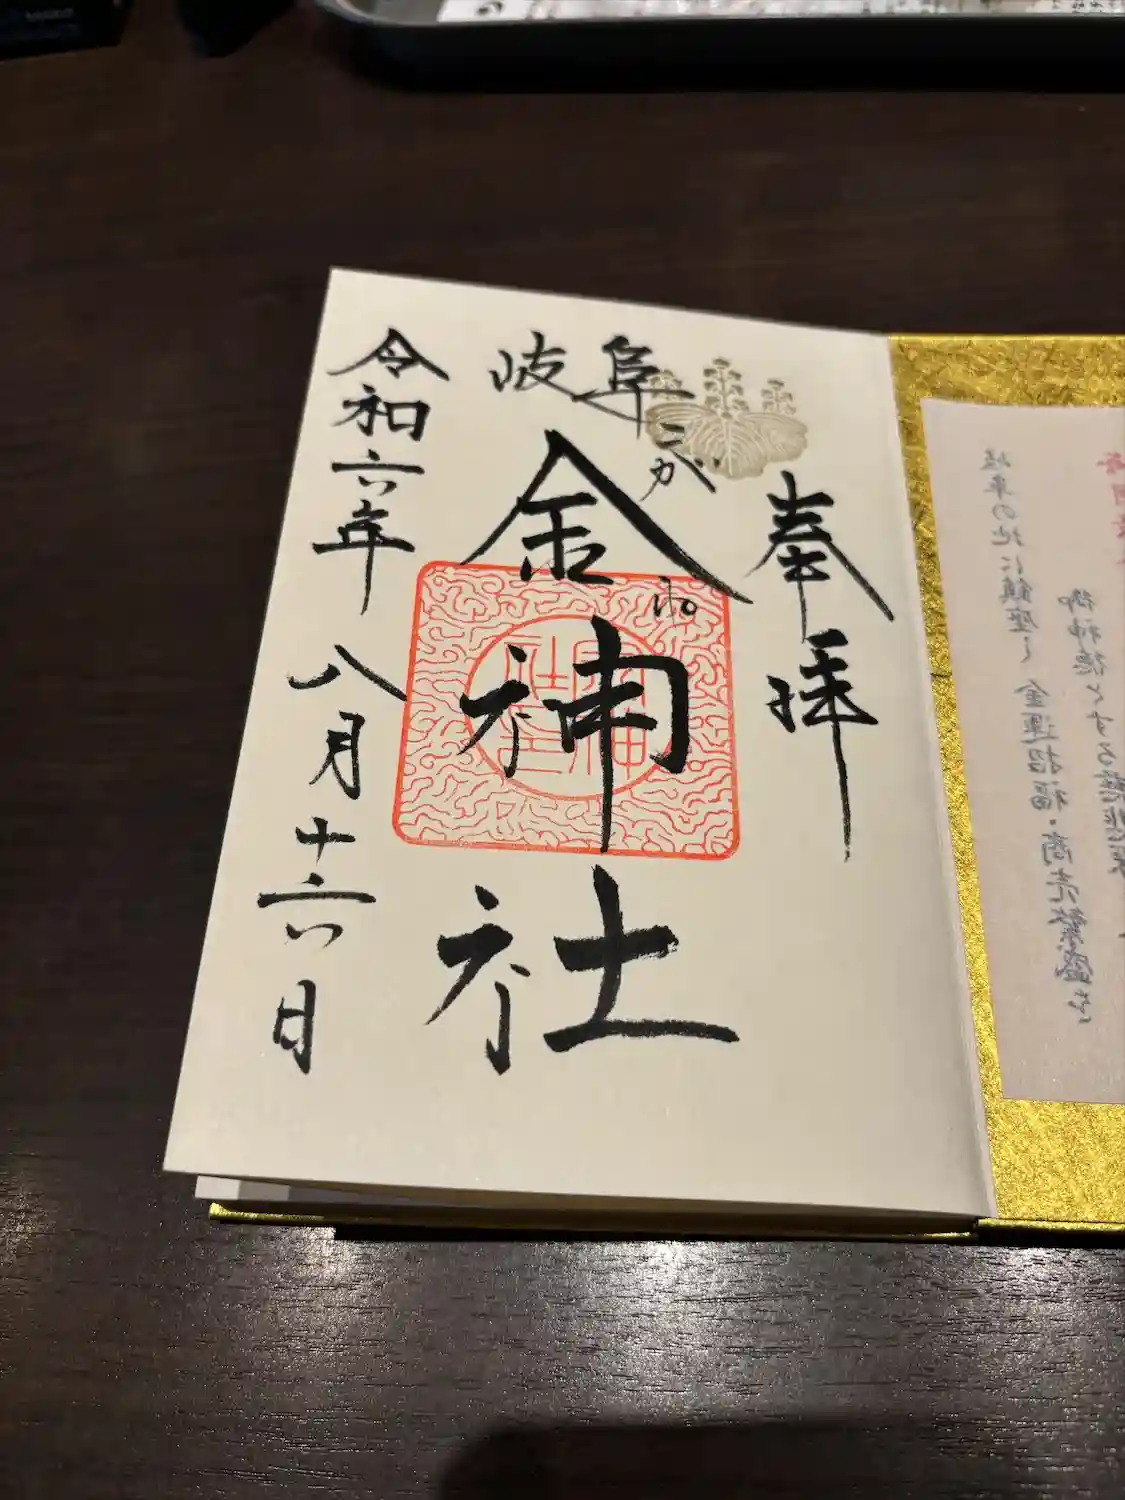 奉拝
岐阜
こがね
金神社
令和六年八月十六日
岐阜の地に鎮座し
金運招福・商売繁盛を
御神徳とする